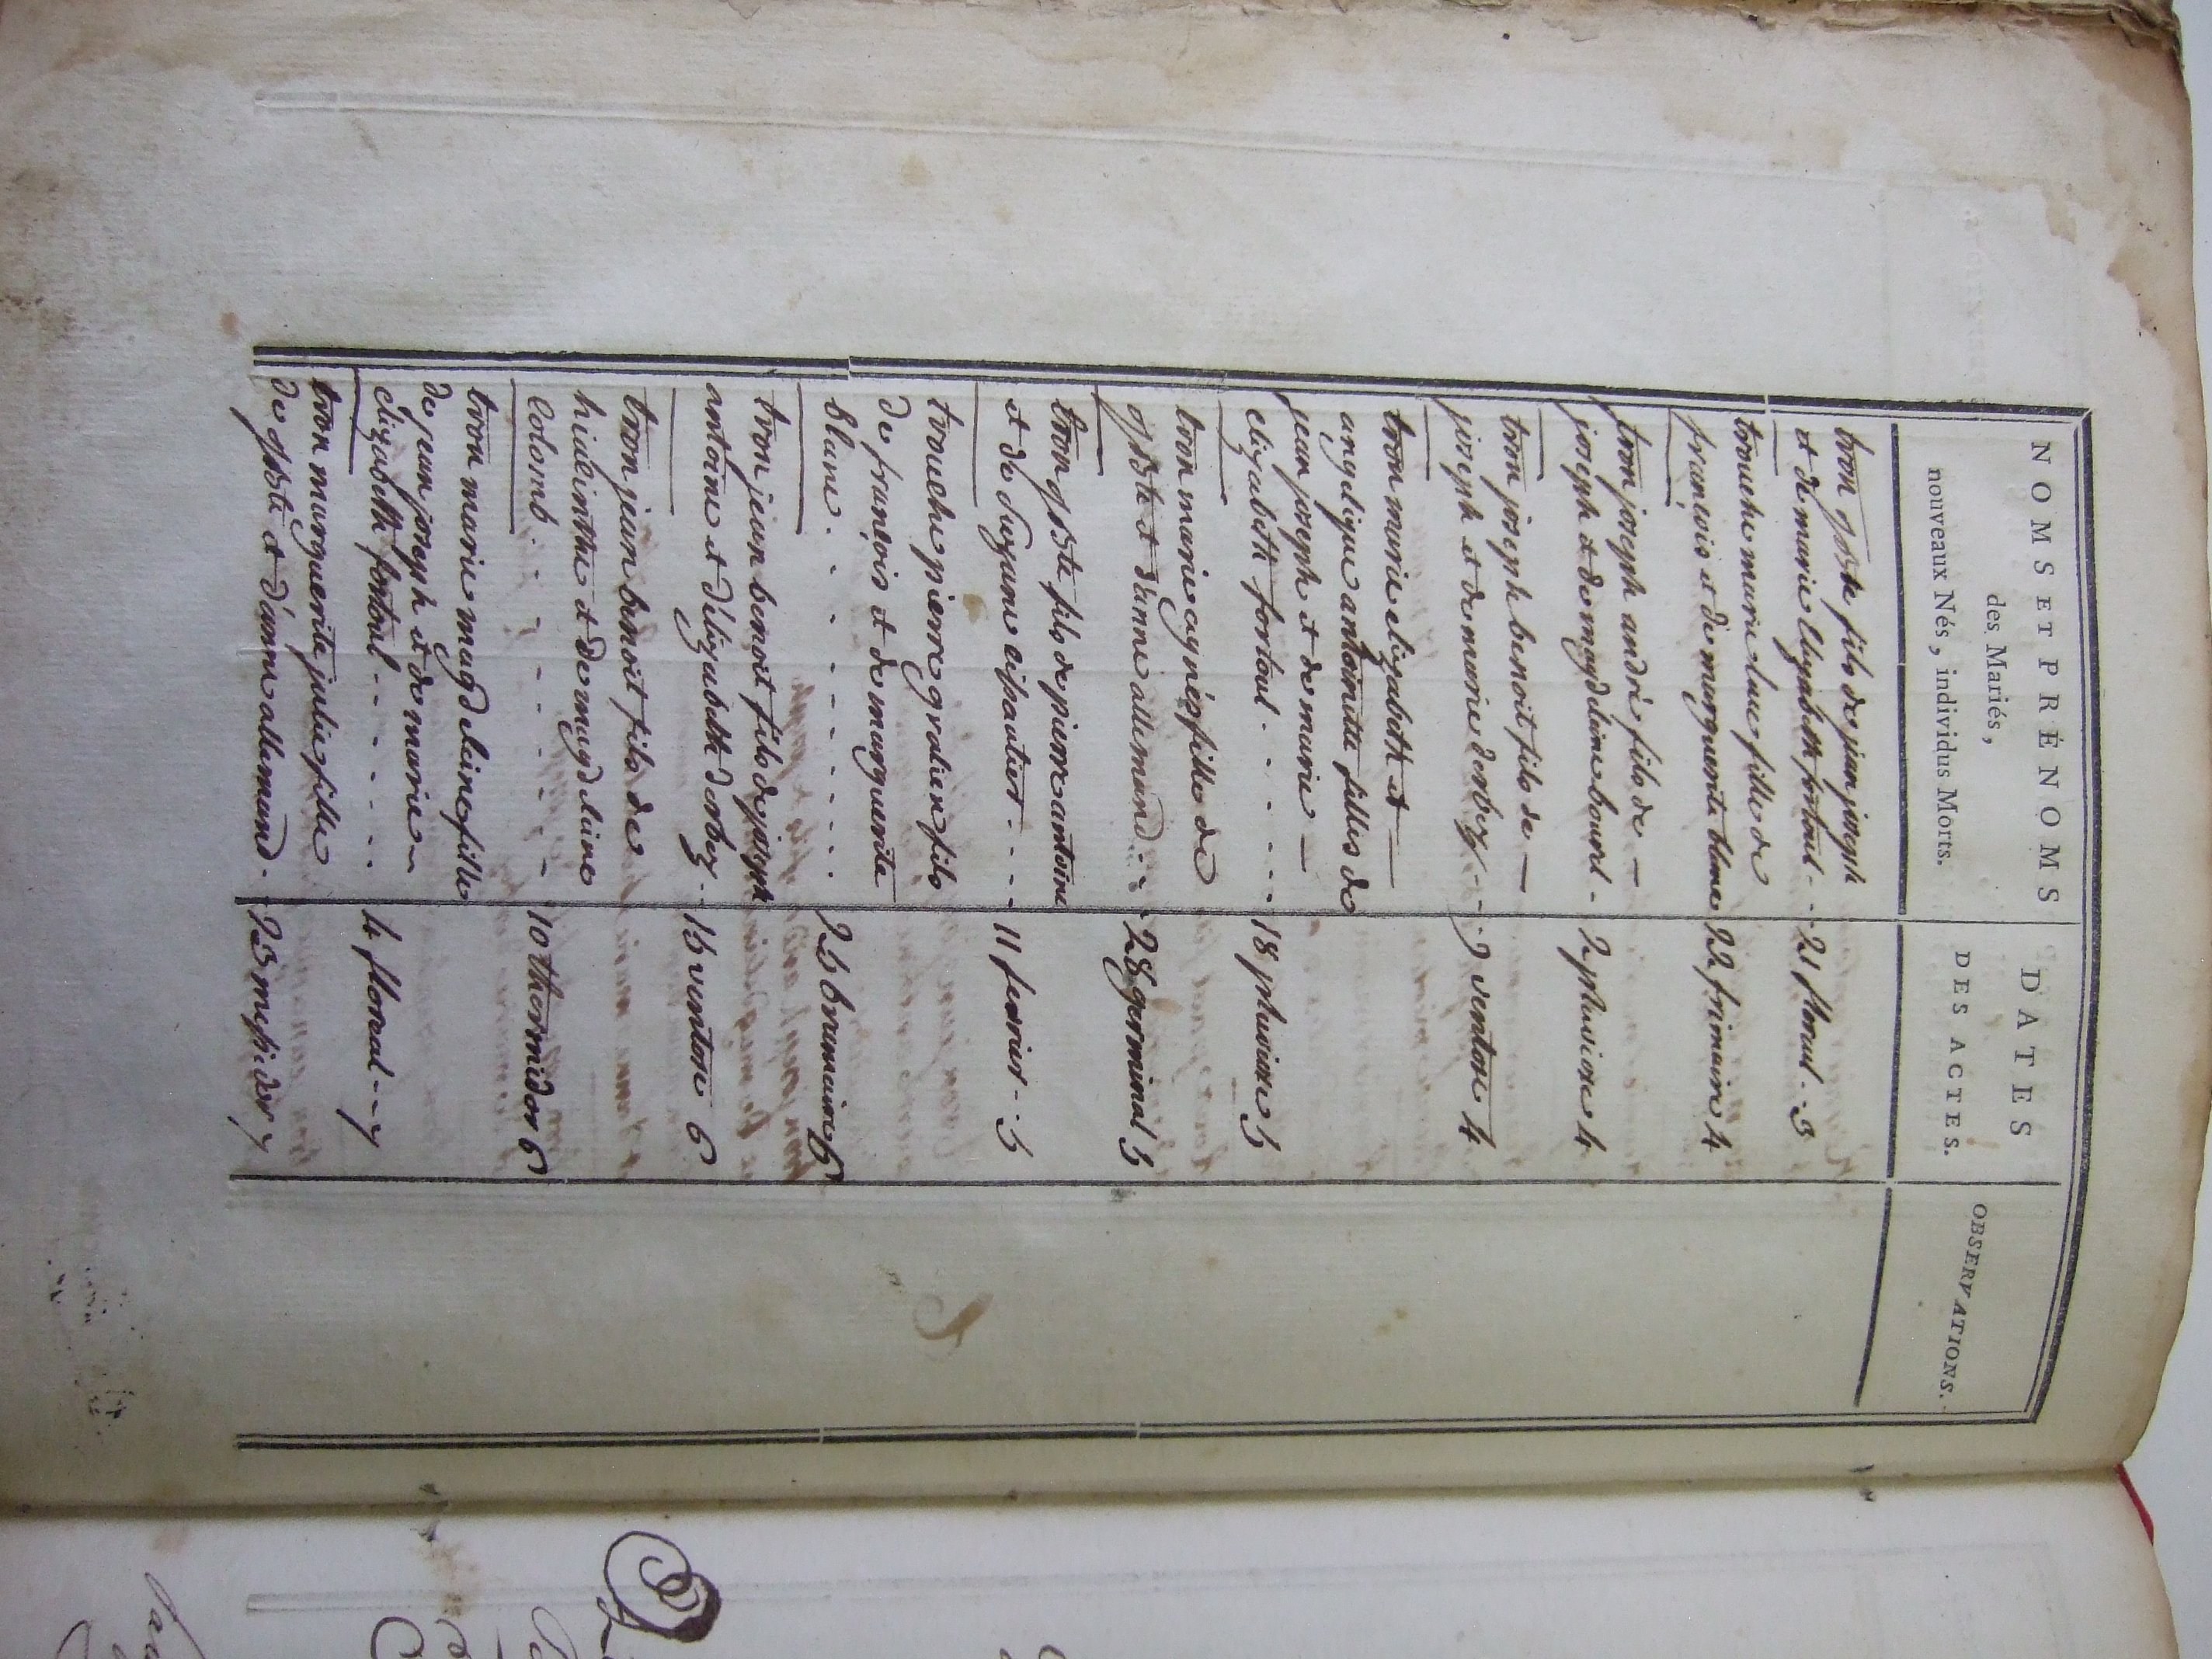 NOMS ET PRÉNOMS
des Mariés,
nouveaux Nés, individus Morts.
DATES
DES ACTES.
OBSERVATIONS.
tron jph bte fils de jean joseph
et de marie Elizabeth fortoul - - 21 floreal - 3
trouche marie luce fille de
françois et de marguerite blanc 22 frimaire 4
tron joseph andré fils de —
joseph et de magdeleine bourl - 2 pluviose 4
tron joseph benoit fils de —
joseph et de marie derbez - - 9 ventose 4
tron marie elizabeth et —
angelique antoinette filles de
jean joseph et de marie —
elizabeth fortoul - - - - 18 pluviose 5
tron marie agnès fille de
et d'anne allemand - - - 28 germinal 5
tron fils de pierre antoine
et de suzane - - - 11 fevrier - 5
trouche pierre gratien fils
de françois et de marguerite
blanc - - - - - - - 25 brumaire 6
tron jean benoit fils de joseph
antoine et d'élizabeth derbez - 16 ventose 6
tron jean benoit fils de
hiacinthe et de magdelaine
colomb - - - - - - 10 thermidor 6
tron marie magdeleine fille
de jean joseph et de marie -
elizabeth fortoul - - - - - 4 floreal - - 7
tron marguerite julie fille
de et d'anne allemand - 23 messidor 7